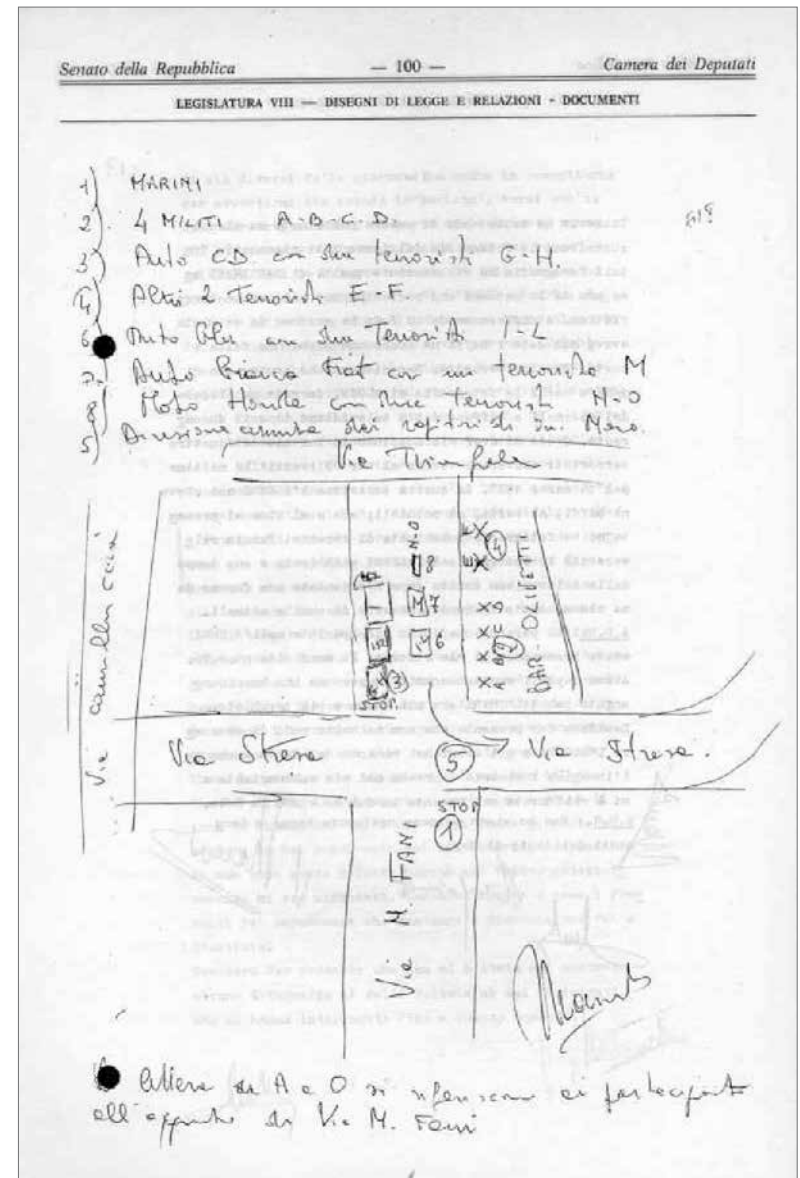 Senato della Repubblica — 100 — Camera dei Deputati
LEGISLATURA VIII — DISEGNI DI LEGGE E RELAZIONI - DOCUMENTI
1) MARINI
2) 4 MILITI A-B-C-D.
3) Auto CD con due terroristi G-H.
4) Altri 2 Terroristi E-F
6) Auto Blu con due Terroristi I-L
7) Auto Bianca Fiat con un terrorista M
8) Moto Honda con due terroristi N-O
5) Direzione assunta dai rapitori di On. Moro.
Via Trionfale
Via Camillo
N-O
8
M 7
6
3
STOP
F
E
4
D
C
B
A
2
BAR-OLIVETTI
Via Stresa
5
Via Stresa.
STOP
1
Via M. FANI
lettere da A a O si riferiscono ai partecipanti
all'agguato di Via M. Fani